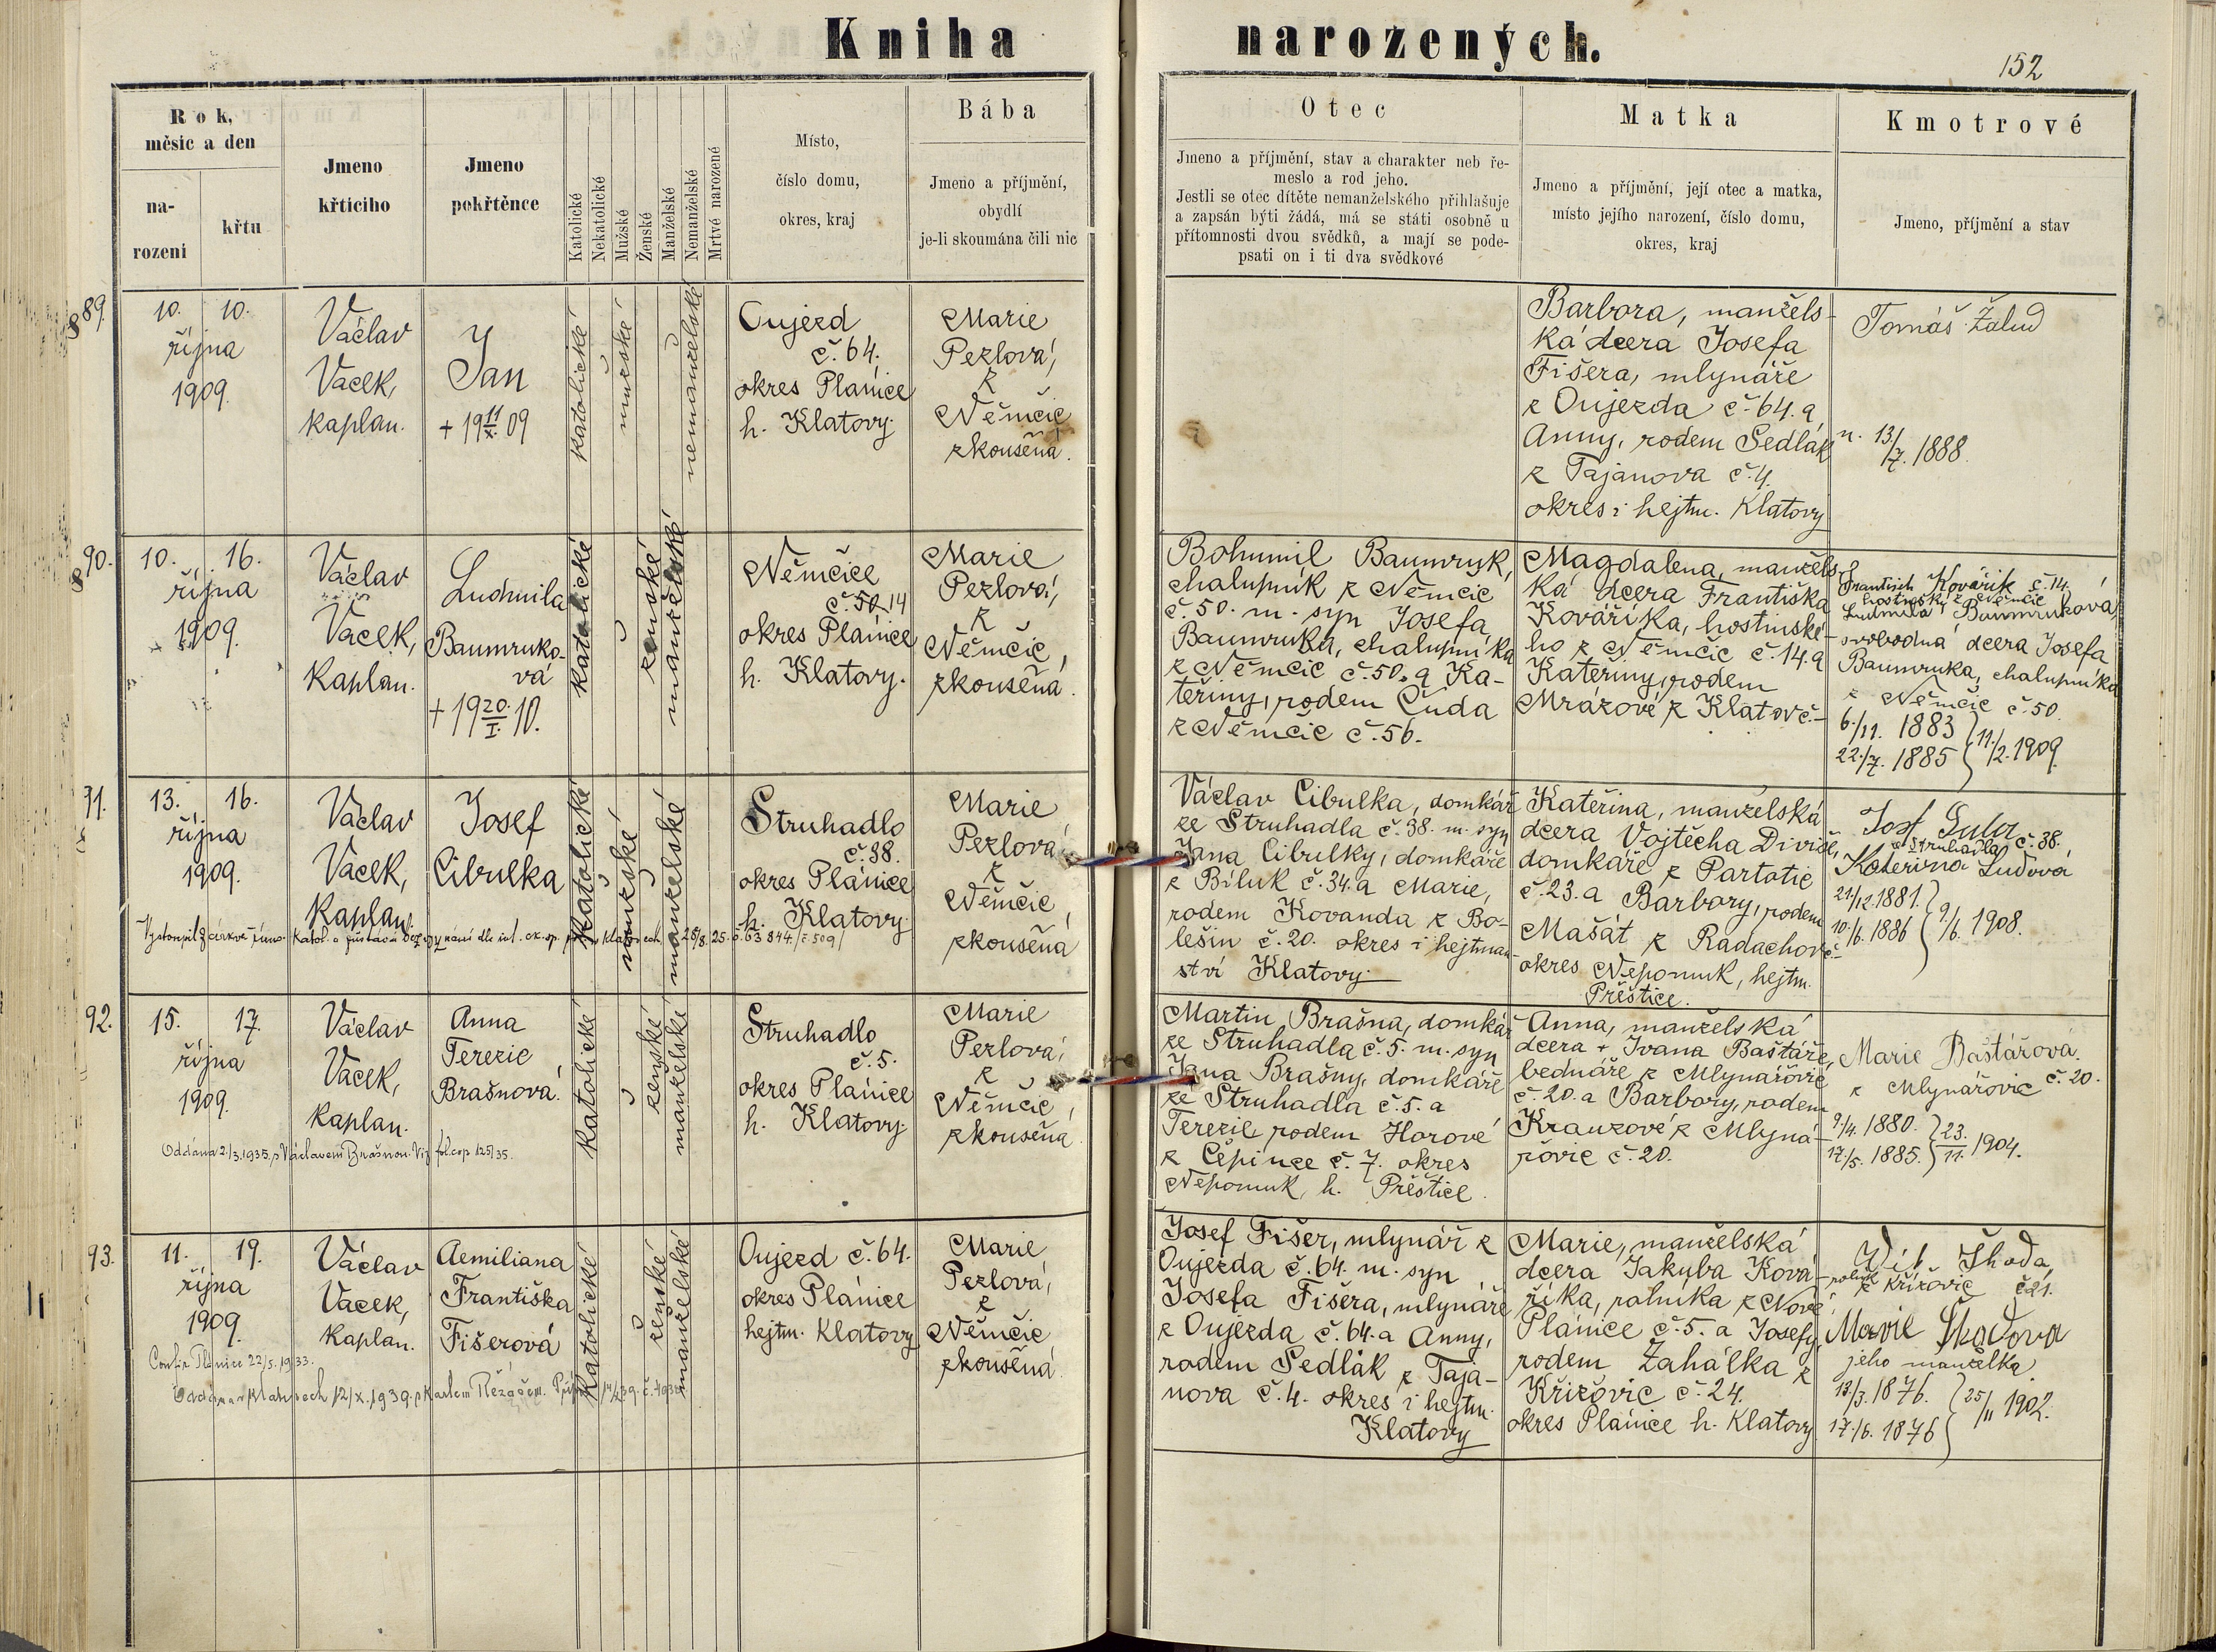 Kniha narozených.
152
Rok,
měsíc a den
na-
rození
křtu
Jmeno
křtícího
Jmeno
pokřtěnce
Katolické
Nekatolické
Mužské
Ženské
Manželské
Nemanželské
Mrtvé narozené
Místo,
číslo domu,
okres, kraj
Bába
Jmeno a příjmění,
obydlí
je-li skoumána čili nic
Otec
Jmeno a příjmění, stav a charakter neb ře-
meslo a rod jeho.
Jestli se otec dítěte nemanželského přihlašuje
a zapsán býti žádá, má se státi osobně u
přítomnosti dvou svědků, a mají se pode-
psati on i ti dva svědkové
Matka
Jmeno a příjmění, její otec a matka,
místo jejího narození, číslo domu,
okres, kraj
Kmotrové
Jmeno, příjmění a stav
89.
10. 10.
října
1909.
Václav
Vacek,
kaplan.
Jan
+ 19 11/X. 09
katolické
mužské
nemanželské
Oujezd
č. 64.
okres Plánice
h. Klatovy.
Marie
Pezlová,
z
Němčic
zkoušená.
Barbora, manžels-
ká dcera Josefa
Fišera, mlynáře
z Oujezda č. 64. a
Anny, rodem Sedlák
z Tajanova č. 4.
okres i hejtm. Klatovy
Tomáš Žalud
n. 13/7. 1888.
90.
10. 16.
října
1909.
Václav
Vacek,
kaplan.
Ludmila
Baumruko-
vá
+ 19 20./I. 10.
katolické
ženské
manželské
Němčice
č. 50 14
okres Plánice
h. Klatovy.
Marie
Pezlová,
z
Němčic,
zkoušená.
Bohumil Baumruk,
chalupník z Němčic
č. 50. m. syn Josefa
Baumruka, chalupníka
z Němčic č. 50. a Ka-
teřiny, rodem Čuda
z Němčic č. 56.
Magdalena, manžels-
ká dcera Františka
Kováříka, hostinské-
ho z Němčic č. 14. a
Kateřiny, rodem
Mrázové z Klatov č.-
František Kovařík č. 14.
hostinský z Němčic
Ludmila Baumruková,
svobodná dcera Josefa
Baumruka, chalupníka
z Němčic č. 50.
6./11. 1883
22./7. 1885 } 11./2. 1909.
91.
13. 16.
října
1909.
Václav
Vacek,
kaplan.
Josef
Cibulka
katolické
mužské
manželské
Struhadlo
č. 38.
okres Plánice
h. Klatovy.
Marie
Pezlová,
z
Němčic,
zkoušená
Vystoupil z církve římsko katol. a zůstává bez vyznání
Václav Cibulka, domkář
ze Struhadla č. 38. m. syn
Jana Cibulky, domkáře
z Bíluk č. 34. a Marie,
rodem Kovanda z Bo-
lešin č. 20. okres i hejtman-
ství Klatovy.
Kateřina, manželská
dcera Vojtěcha Diviše,
domkáře z Partotic
č. 23. a Barbory, rodem
Mašát z Radachov č.-
okres Nepomuk, hejtm.
Přeštice.
ze Struhadla č. 38.
Kateřina
21/12. 1881.
10./6. 1886 } 9./6. 1908.
92.
15. 17.
října
1909.
Václav
Vacek,
kaplan.
Anna
Terezie
Brašnová.
katolické
ženské
manželské
Struhadlo
č. 5.
okres Plánice
h. Klatovy.
Marie
Pezlová,
z
Němčic,
zkoušená
Oddána 2./3. 1935. s Václavem Brašnou. Viz fol. cop. 125/35.
Martin Brašna, domkář
ze Struhadla č. 5. m. syn
Jana Brašny, domkáře
ze Struhadla č. 5. a
Terezie rodem Horové
z Čepince č. 7. okres
Nepomuk, h. Přeštice.
Anna, manželská
dcera + Ivana Baštáře,
bednáře z Mlynářovic
č. 20. a Barbory, rodem
Krauzové z Mlyná-
řovic č. 20.
Marie Baštářová.
z Mlynářovic č. 20.
9./4. 1880.
17./5. 1885. } 23./11. 1904.
93.
11. 19.
října
1909.
Václav
Vacek,
kaplan.
Aemiliana
Františka
Fišerová
katolické
ženské
manželské
Oujezd č. 64.
okres Plánice
hejtm. Klatovy
Marie
Pezlová,
z
Němčic
zkoušená.
Confir. Plánice 22/5. 1933.
Oddána v Klatovech 12/X. 1939. s Karlem
Josef Fišer, mlynář z
Oujezda č. 64. m. syn
Josefa Fišera, mlynáře
z Oujezda č. 64. a Anny,
rodem Sedlák z Taja-
nova č. 4. okres i hejtm.
Klatovy
Marie, manželská
dcera Jakuba Kova-
říka, rolníka z Nové
Plánice č. 5. a Josefy
rodem Zahálka z
Křižovic č. 24.
okres Plánice h. Klatovy
Vít Škoda,
rolník z Křižovic č. 21.
Marie Škodova
jeho manželka
13./3. 1876.
17./6. 1876 } 25/11 1902.